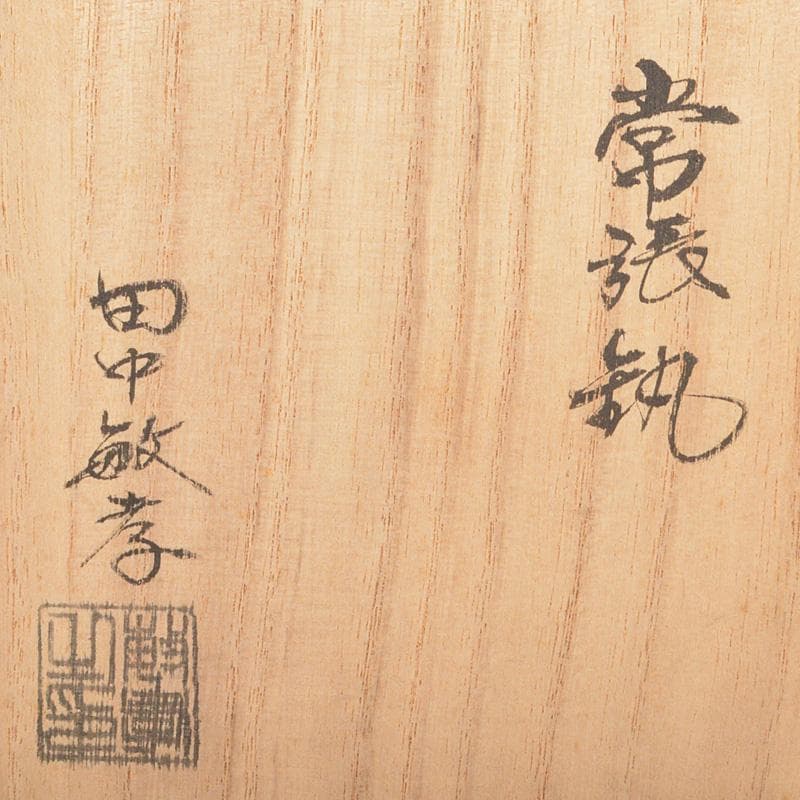 常張釻
田中敏孝